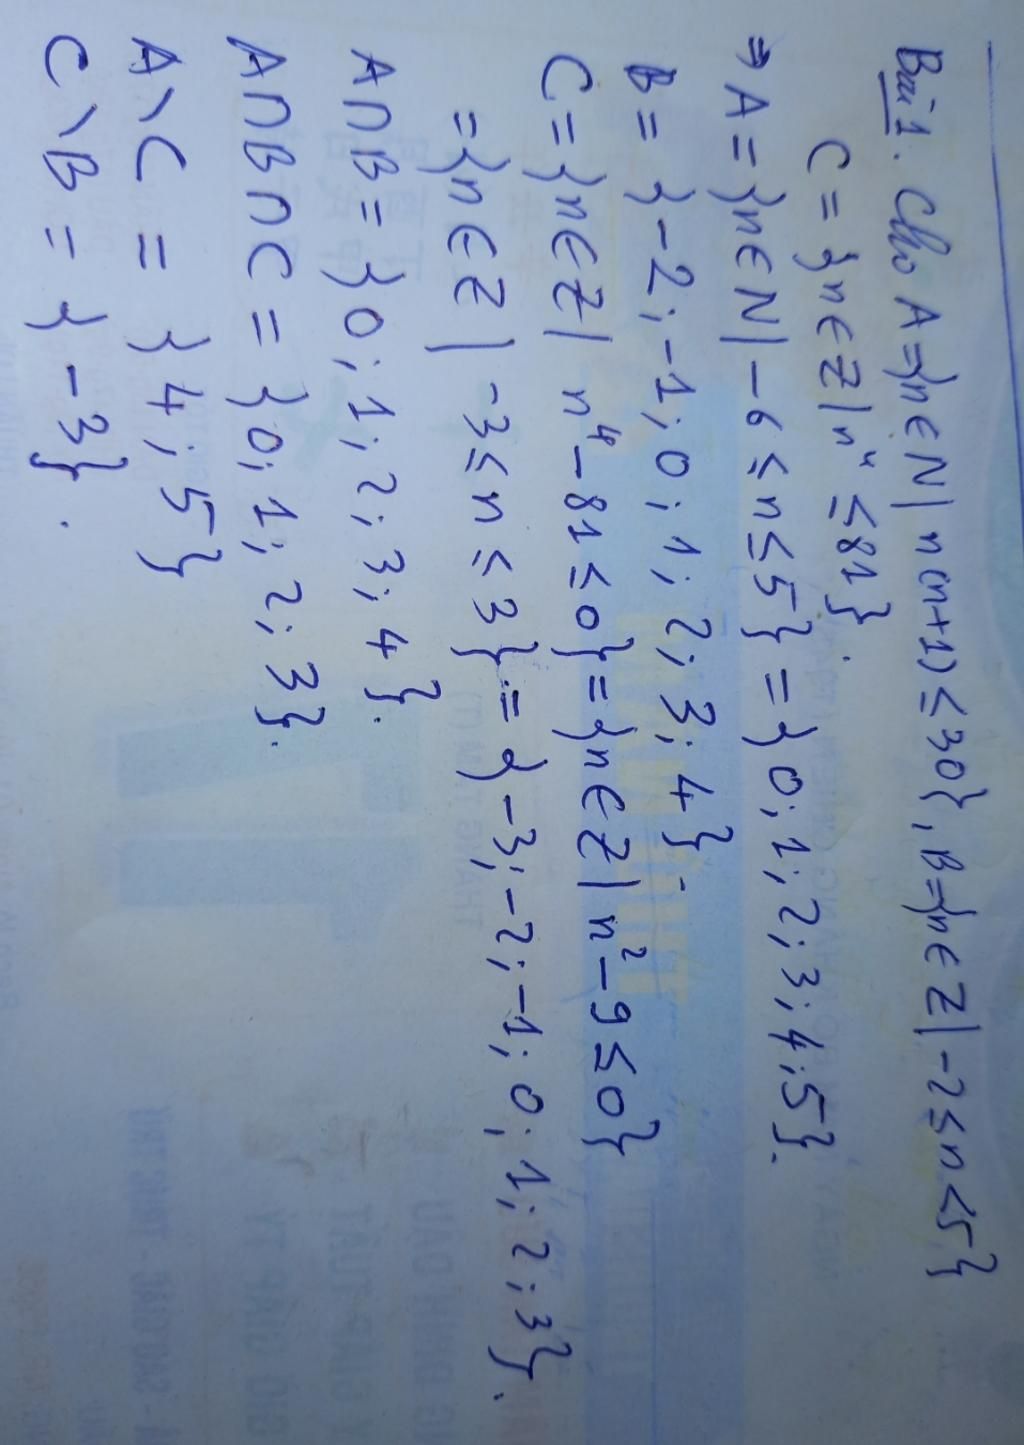 Bài 1. Cho A={n∈N| n(n+1)≤30}, B={n∈Z| -2≤n<5}
C = {n∈Z| n⁴ ≤81}.
⇒ A = {n∈N| -6 ≤n≤5} = {0; 1; 2; 3; 4; 5}.
B = {-2; -1; 0; 1; 2; 3; 4}.
C = {n∈Z| n⁴-81≤0} = {n∈Z| n²-9≤0}
= {n∈Z| -3≤n≤3} = {-3; -2; -1; 0; 1; 2; 3}.
A∩B = {0; 1; 2; 3; 4}.
A∩B∩C = {0; 1; 2; 3}.
A\C = {4; 5}
C\B = {-3}.